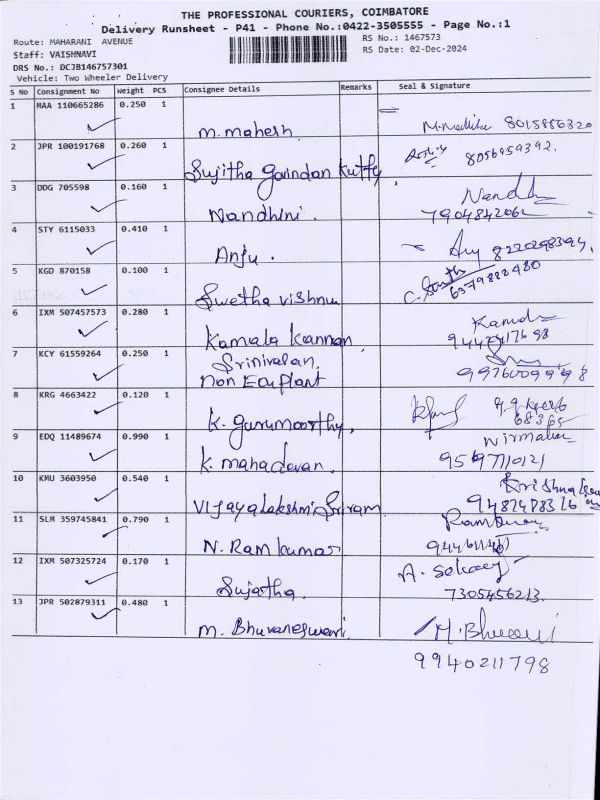 THE PROFESSIONAL COURIERS, COIMBATORE
Delivery Runsheet - P41 - Phone No.:0422-3505555 - Page No.:1
Route: MAHARANI AVENUE
RS No.: 1467573
Staff: VAISHNAVI
RS Date: 02-Dec-2024
DRS No.: DCJB146757301
Vehicle: Two Wheeler Delivery
S No Consignment No Weight PCS Consignee Details Remarks Seal & Signature
1 MAA 110665286 0.250 1
M. Mahesh 8015856320
2 JPR 100191768 0.260 1
Sujitha Govindan Kutty 8056959392.
3 DDG 705598 0.160 1
Nandhini. 7904842062
4 STY 6115033 0.410 1
Anju. 8220298394
5 KGD 870158 0.100 1
Swetha vishnu 6379882980
6 IXM 507457573 0.280 1
Kamala Kannan
7 KCY 61559264 0.250 1
Srinivasan,
Non
8 KRG 4663422 0.120 1
K. Gurumoorthy,
9 EDQ 11489674 0.990 1
K. Mahadevan.
10 KMU 3603950 0.540 1
Vijayalakshmi Sriram
11 SLM 359745841 0.790 1
N. Ram kumar
12 IXM 507325724 0.170 1
Sujatha. 7305456213.
13 JPR 502879311 0.480 1
M. Bhuvaneswari.
9940211798